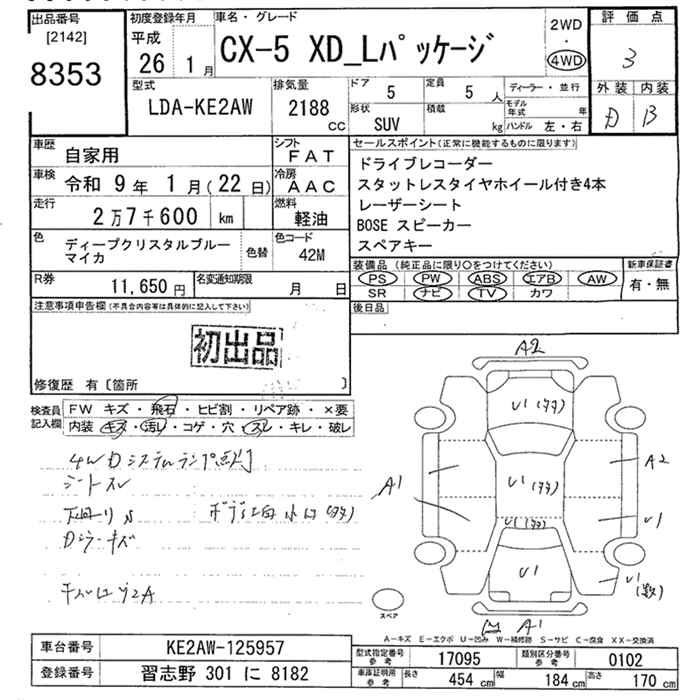 出品番号
[2142]
8353
初度登録年月
平成
26年 1月
車名・グレード
CX-5 XD_Lパッケージ
2WD
・
4WD
評価点
3
外装 内装
D B
型式
LDA-KE2AW
排気量
2188
CC
ドア 5
定員 5人
形状
SUV
積載
kg
ディーラー・並行
モデル年式 年
ハンドル 左・右
車歴
自家用
シフト
FAT
車検
令和 9年 1月(22日)
冷房
AAC
走行
2万7千600 km
燃料
軽油
色
ディープクリスタルブルー
マイカ
色替
色コード
42M
R券
11,650円
名変通知期限
月 日
セールスポイント(正常に機能するものに限ります)
ドライブレコーダー
スタットレスタイヤホイール付き4本
レーザーシート
BOSE スピーカー
スペアキー
装備品 (純正品に限り〇をつけてください)
PS PW ABS エアB AW
SR ナビ TV カワ
新車保証書
有・無
後日品
注意事項申告欄(不具合内容等は具体的に記入して下さい)
初出品
修復歴 有〔箇所 〕
検査員
記入欄
FW キズ・飛石・ヒビ割・リペア跡・×要
内装 キズ・汚レ・コゲ・穴・スレ・キレ・破レ
4WDシステムランプ点灯
シートスレ
下回りS
Dラーキズ
A2
U1
U1
U1
U1
A1
A2
U1
U1
A1
スペア
A－キズ E－エクボ U－凹み W－補修跡 S－サビ C－腐食 XX－交換済
車台番号
KE2AW-125957
登録番号
習志野 301 に 8182
型式指定番号
参考
17095
類別区分番号
参考
0102
車庫証明用
参考
長さ 454 cm
幅 184 cm
高さ 170 cm